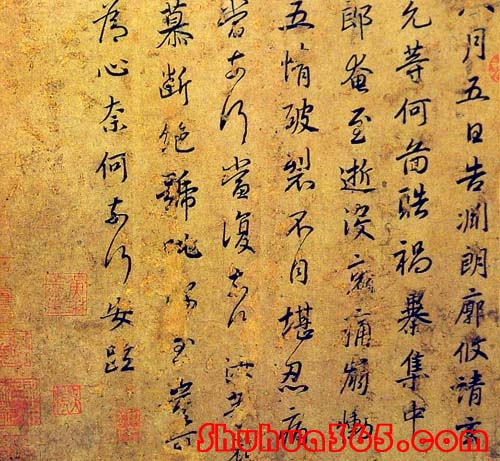 八月五日告淵朗廓攸靖玄
允等何圖酷禍暴集中
郎奄至逝沒哀痛崩慟
五情破裂不自堪忍痛
當奈何當復奈何汝等哀
慕斷絕號咷深至豈可
為心奈何奈何安疏
Shuhua365.com